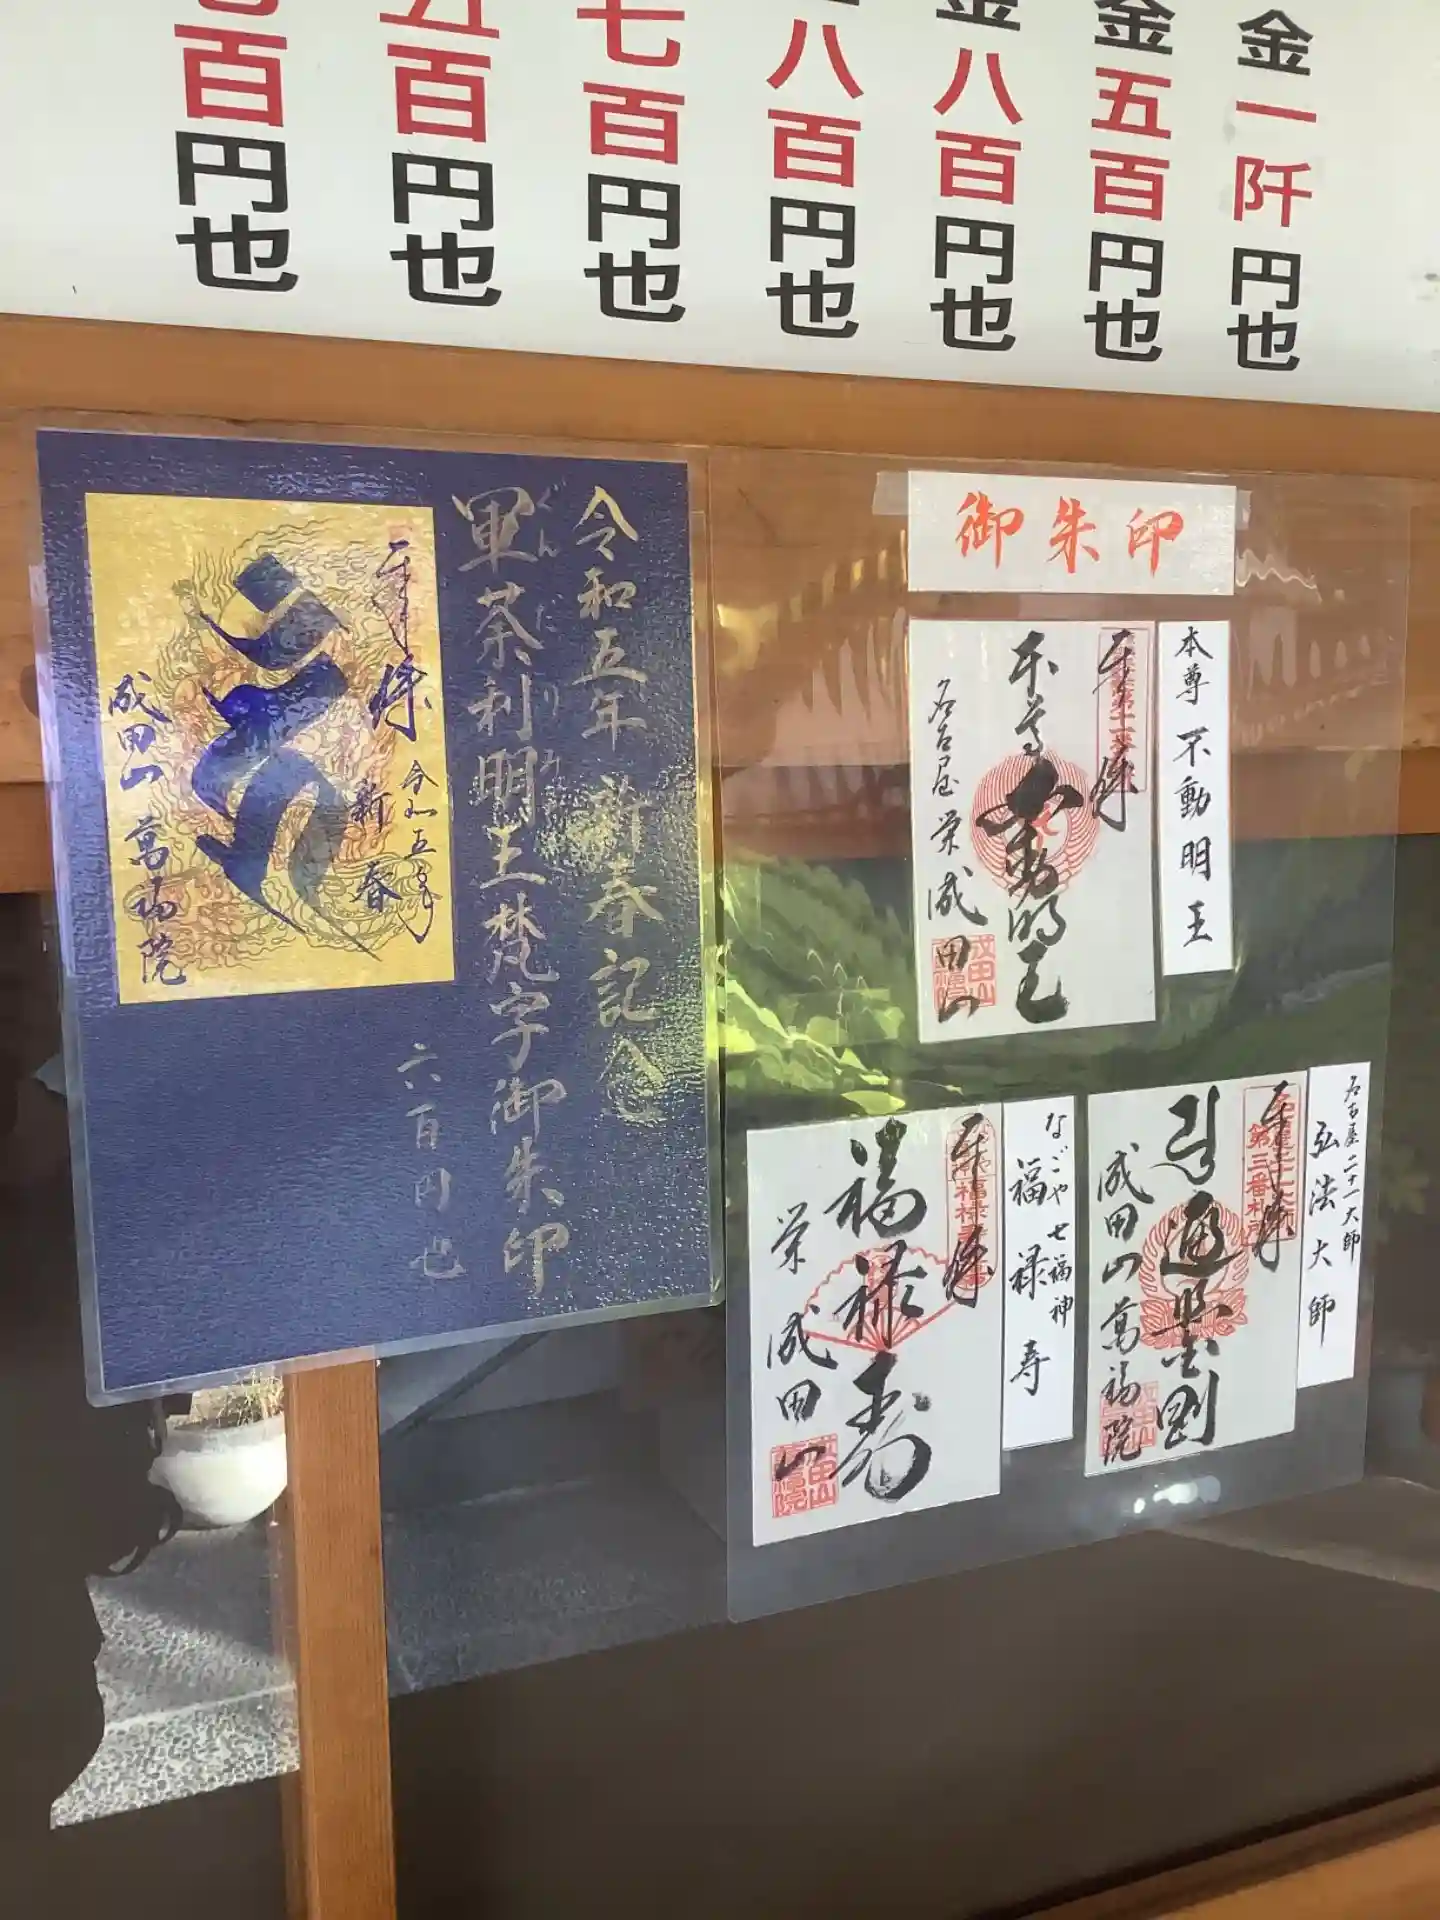 金一阡円也
金五百円也
金八百円也
八百円也
七百円也
五百円也
百円也
令和五年 新春記念
軍荼利明王梵字御朱印
ぐんだりみょ
六百円也
奉拝
令和五年
新春
成田山 萬福院
御朱印
本尊 不動明王
奉拝
本尊不動明王
名古屋栄成田山
成田山
なごや七福神
福禄寿
奉拝
福禄寿
栄成田山
成田山
名古屋二十一大師
弘法大師
奉拝
第三番札所
遍照金剛
成田山萬福院